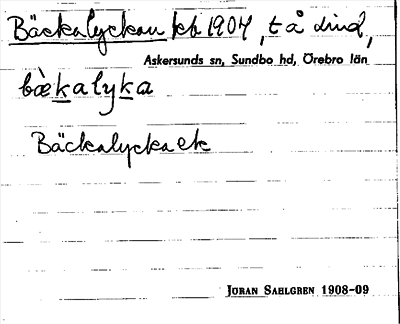 Bäckalyckan kb 1904, t å
Askersunds sn, Sundbo hd, Örebro län
bæ̀kalyka
Bäckalycka
JÖRAN SAHLGREN 1908-09